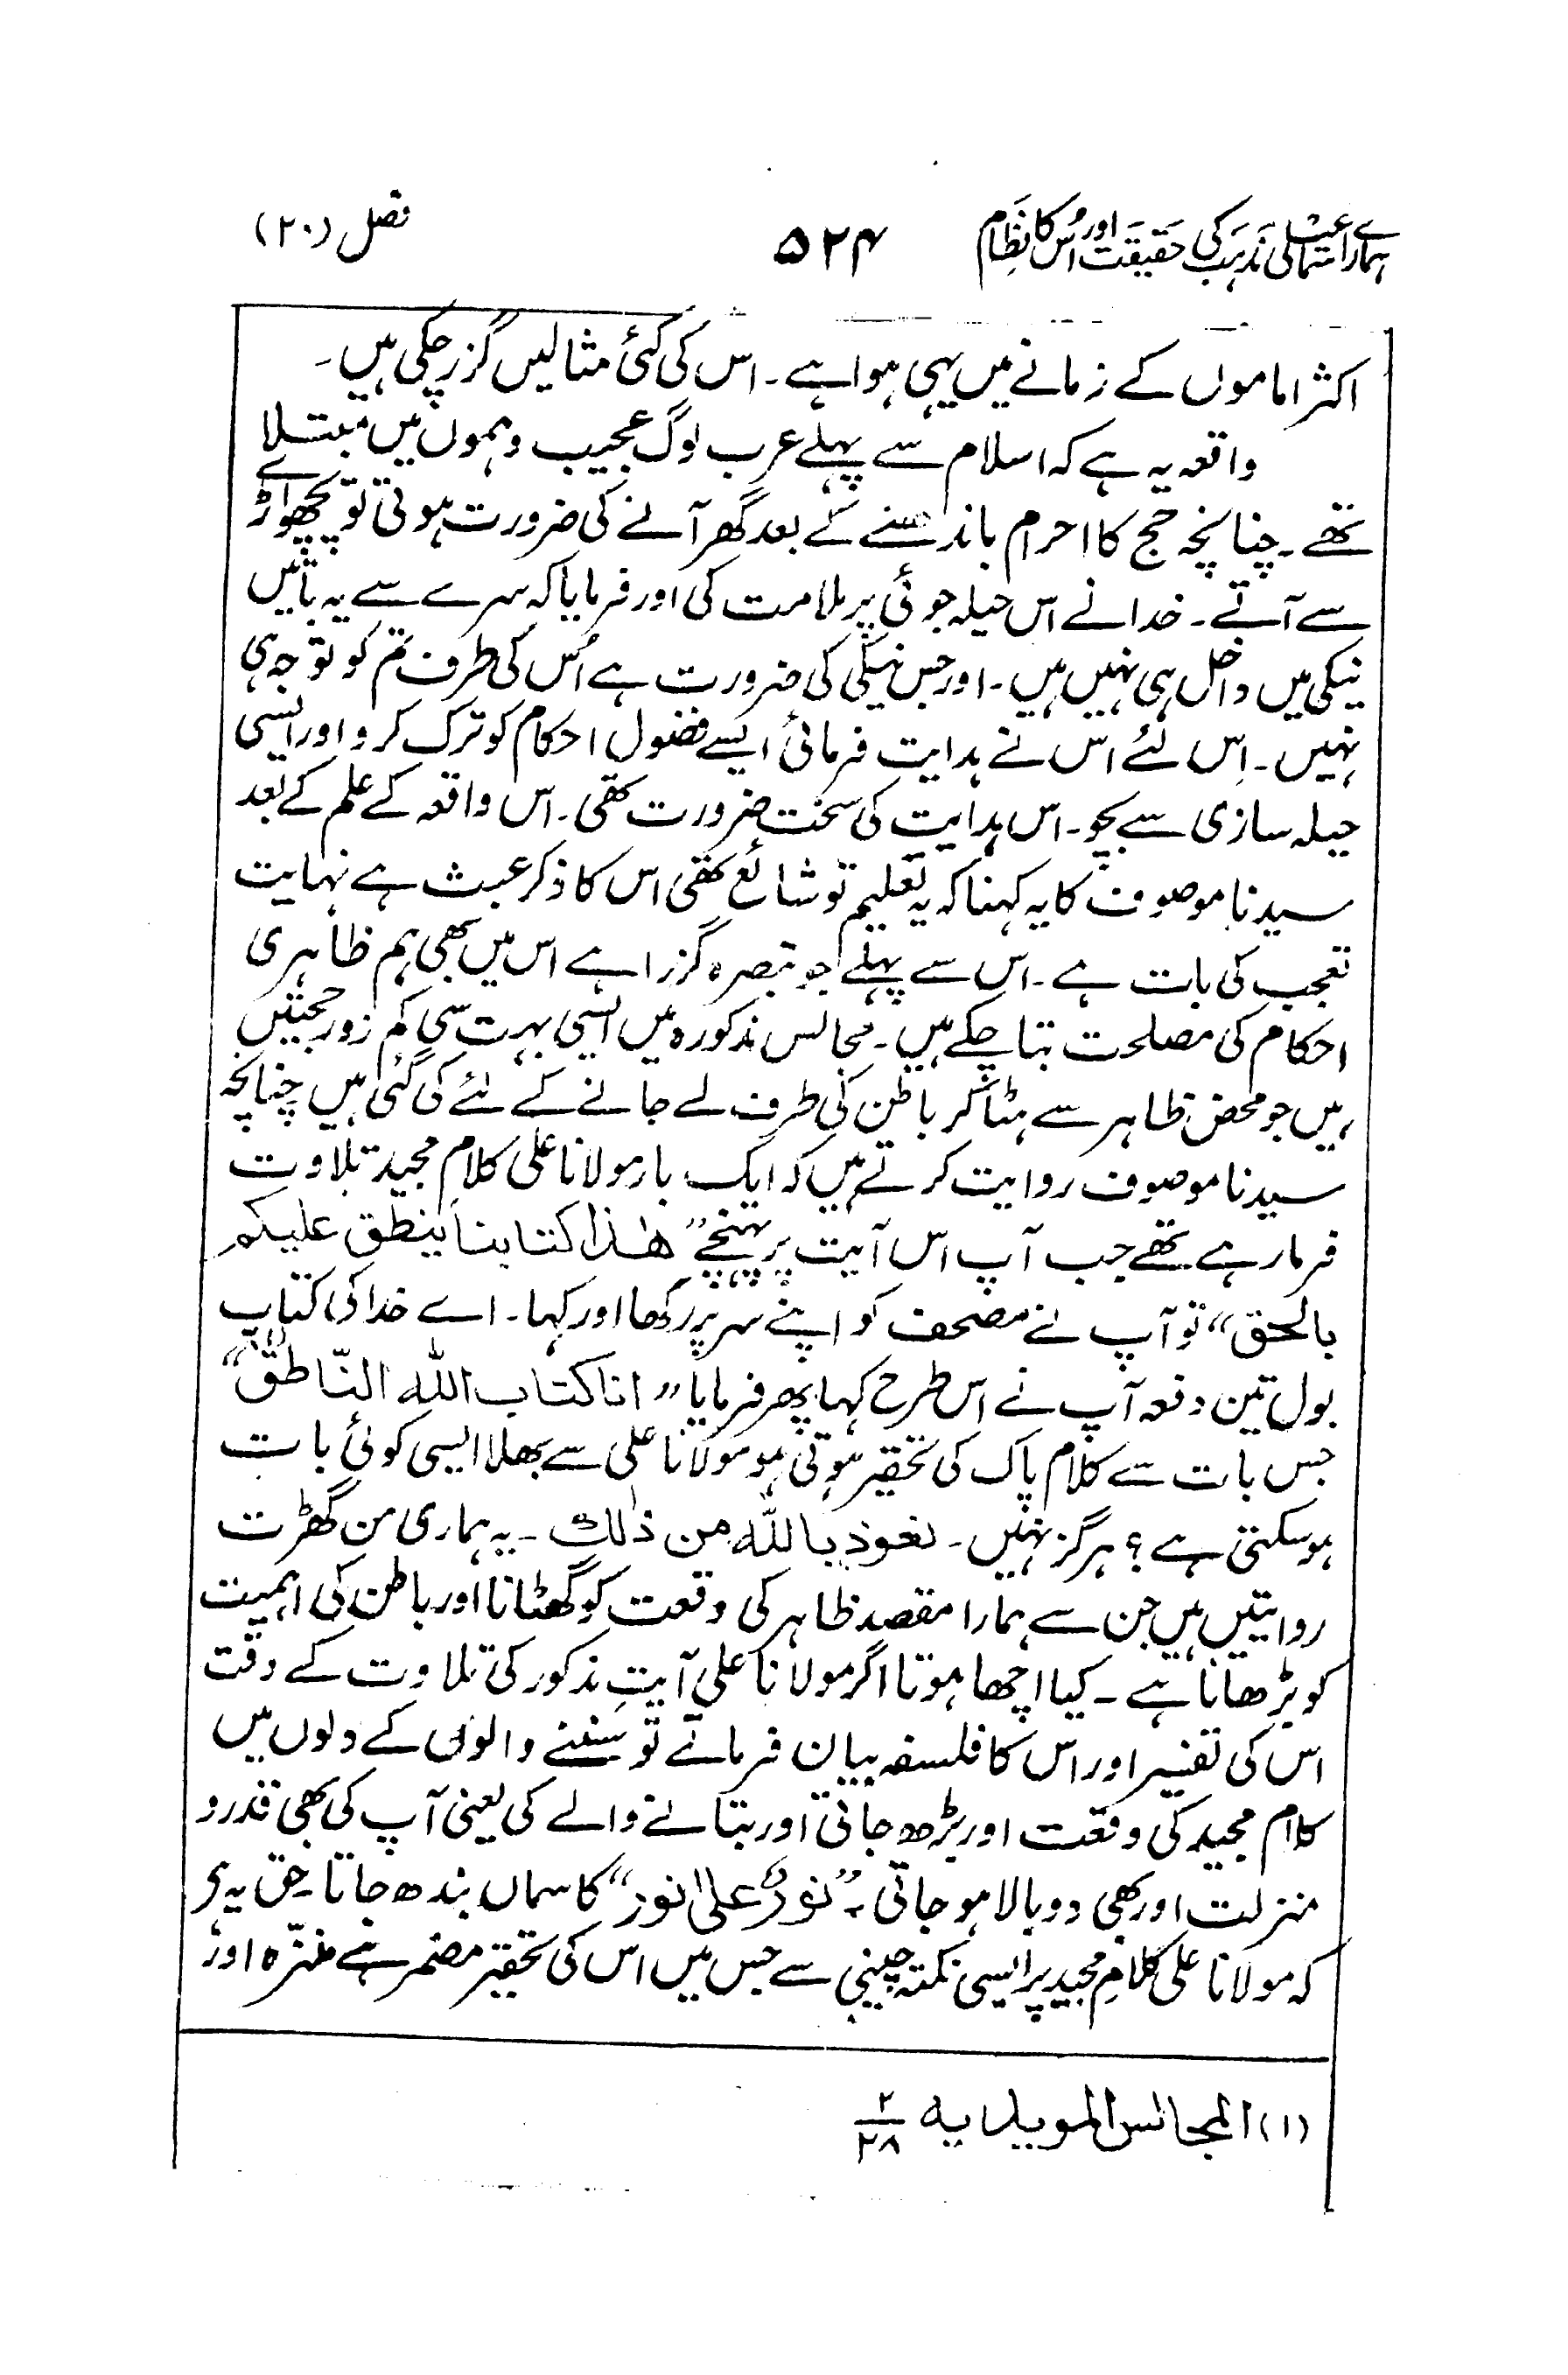 ہمارے اسمٰعیلی مذہب کی حقیقت اور اُس کا نظام ۵۲۴ فصل (۲۰)
اکثر اماموں کے زمانے میں یہی ہوا ہے۔ اس کی کئی مثالیں گزر چکی ہیں۔
واقعہ یہ ہے کہ اسلام سے پہلے عرب لوگ عجیب وہموں میں مبتلا
تھے۔ چنانچہ حج کا احرام باندھنے کے بعد گھر آنے کی ضرورت ہوتی تو پچھواڑے
سے آتے۔ خدا نے اس حیلہ جوئی پر ملامت کی اور فرمایا کہ سرے سے یہ باتیں
نیکی میں داخل ہی نہیں ہیں۔ اور جس نیکی کی ضرورت ہے اُس کی طرف تم کو توجہ ہی
نہیں۔ اِس لئے اس نے ہدایت فرمائی ایسے فضول احکام کو ترک کرو اور ایسی
حیلہ سازی سے بچو۔ اس ہدایت کی سخت ضرورت تھی۔ اس واقعہ کے علم کے بعد
سیدنا موصوف کا یہ کہنا کہ یہ تعلیم تو شائع تھی اس کا ذکر عبث ہے نہایت
تعجب کی بات ہے۔ اس سے پہلے جو تبصرہ گزرا ہے اس میں بھی ہم ظاہری
احکام کی مصلحت بتا چکے ہیں۔ مجالس مذکورہ میں ایسی بہت سی کم زور حجتیں
ہیں جو محض ظاہر سے ہٹا کر باطن کی طرف لے جانے کے لئے کی گئی ہیں چنانچہ
سیدنا موصوف روایت کرتے ہیں کہ ایک بار مولانا علی کلام مجید تلاوت
فرما رہے تھے جب آپ اس آیت پر پہنچے ”ھٰذا کتابنا ینطق علیکم
بالحق“ تو آپ نے مصحف کو اپنے سر پر رکھا اور کہا۔ اے خدا کی کتاب
بول تین دفعہ آپ نے اس طرح کہا پھر فرمایا ”انا کتاب اللہ النّاطق“
جس بات سے کلام پاک کی تحقیر ہوتی ہو مولانا علی سے بھلا ایسی کوئی بات
ہوسکتی ہے؟ ہرگز نہیں۔ نعوذ باللہ من ذٰلک۔ یہ ہماری من گھڑت
روایتیں ہیں جن سے ہمارا مقصد ظاہر کی وقعت کو گھٹانا اور باطن کی اہمیت
کو بڑھانا ہے۔ کیا اچھا ہوتا اگر مولانا علی آیتِ مذکور کی تلاوت کے وقت
اس کی تفسیر اور اس کا فلسفہ بیان فرماتے تو سننے والوں کے دلوں میں
کلام مجید کی وقعت اور بڑھ جاتی اور بتانے والے کی یعنی آپ کی بھی قدر و
منزلت اور بھی دوبالا ہو جاتی۔ ”نورٌ علیٰ نور“ کا سماں بندھ جاتا۔ حق یہ ہے
کہ مولانا علی کلامِ مجید پر ایسی نکتہ چینی سے جس میں اس کی تحقیر مضمر ہے منزّہ اور
(۱) المجالس المویدیہ ۲/۲۸